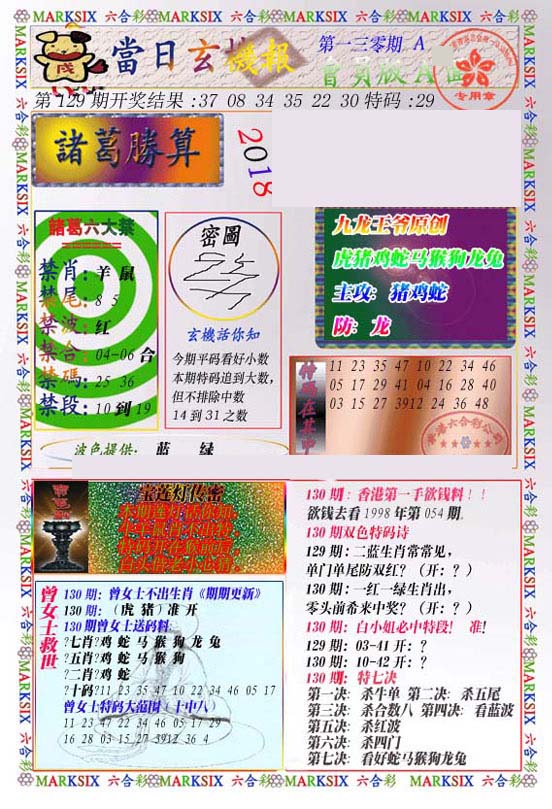 MARKSIX 六合彩 MARKSIX 六合彩 MARKSIX 六合彩 MARKSIX 六合彩
當日玄機報
第一三零期 A
會員版A面
专用章
第129期开奖结果:37 08 34 35 22 30特码:29
諸葛勝算
2018
諸葛六大禁
禁肖: 羊 鼠
禁尾: 8 5
禁波: 红
禁合: 04-06 合
禁碼: 25 36
禁段: 10到19
密圖
玄機话你知
今期平码看好小数
本期特码追到大数,
但不排除中数
14到31之数
九龙王爷原创
虎猪鸡蛇马猴狗龙兔
主攻: 猪鸡蛇
防: 龙
特码在其中
11 23 35 47 10 22 34 46
05 17 29 41 04 16 28 40
03 15 27 3912 24 36 48
波色提供: 蓝 绿
宝莲灯传密
130 期: 香港第一手欲钱料!!
欲钱去看1998年第054期.
130 期双色特码诗
129 期: 二蓝生肖常常见,
单门单尾防双红? (开: ?)
130 期: 一红一绿生肖出,
零头前希来中奖? (开: ?)
130 期: 白小姐必中特段! 准!
129 期: 03-41 开: ?
130 期: 10-42 开: ?
130 期: 特七决
第一决: 杀牛单 第二决: 杀五尾
第三决: 杀合数八 第四决: 看蓝波
第五决: 杀红波
第六决: 杀四门
第七决: 看好蛇马猴狗龙兔
曾女士救世
130 期: 曾女士不出生肖《期期更新》
130 期: (虎 猪) 准 开
130 期曾女士送码料:
?七肖?鸡 蛇 马 猴 狗 龙 兔
?五肖?鸡 蛇 马 猴 狗
?二肖?鸡 蛇
?十码?11 23 35 47 10 22 34 46 05 17
曾女士特码大范围 (十中八)
11 23 47 22 34 46 05 17 29
16 28 03 15 27 3912 36 4
MARKSIX 六合彩 MARKSIX 六合彩 MARKSIX 六合彩 MARKSIX 六合彩